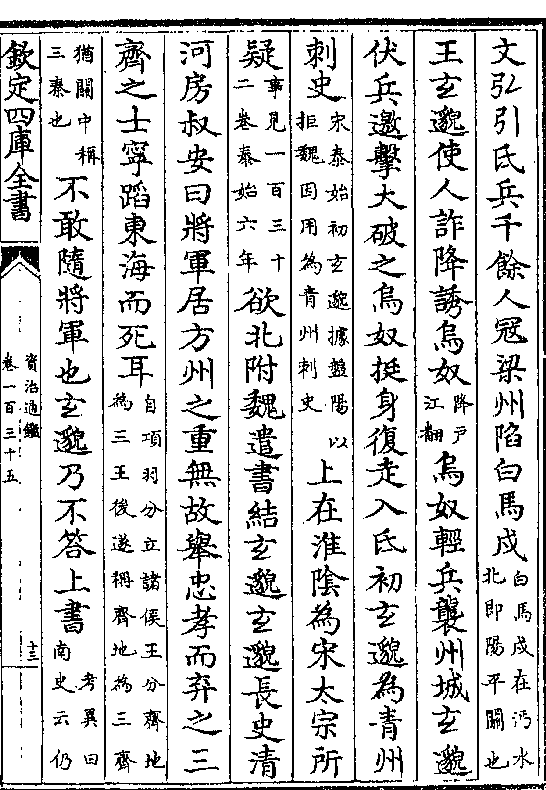 文弘引氐兵千餘人冦梁州陷白馬戍白馬戍在沔水北即陽平關也
王玄邈使人詐降誘烏奴降戸江翻烏奴輕兵襲州城玄邈
伏兵邀擊大破之烏奴挺身復走入氐初玄邈為青州
刺史宋泰始初玄邈據盤陽以拒魏因用為青州刺史上在淮陰為宋太宗所
疑事見一百三十二卷泰始六年欲北附魏遣書結玄邈玄邈長史清
河房叔安曰將軍居方州之重無故舉忠孝而弃之三
齊之士寧蹈東海而死耳自項羽分立諸侯王分齊地為三王後遂稱齊地為三齊
猶關中稱三秦也不敢隨將軍也玄邈乃不答上書考異曰南史云仍
欽定四庫全書
資治通鑑
卷一百三十五
十三